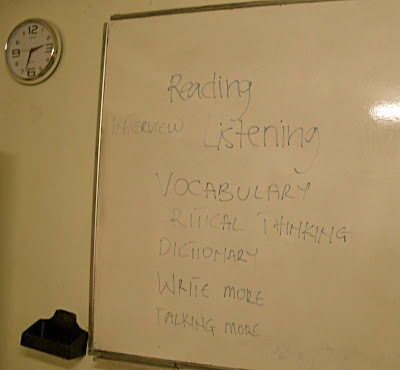 Reading
INTERVIEW Listening
VOCABULARY
RITICAL THINKING
DICTIONARY
WRITE MORE
TALKING MORE